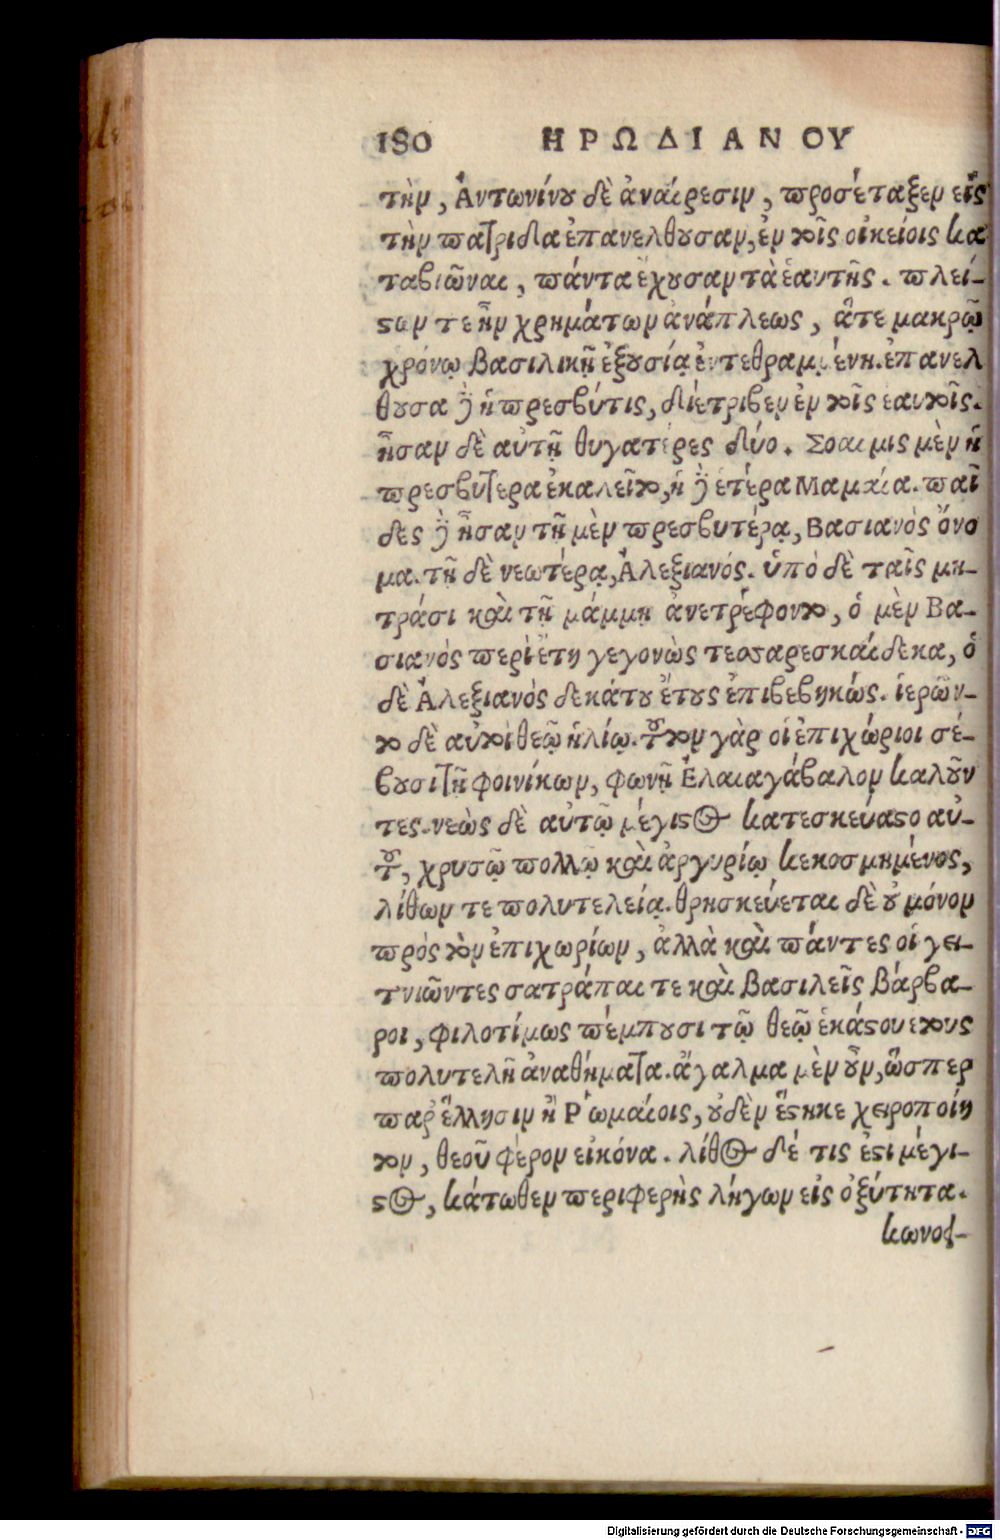 180 ΗΡΩΔΙΑΝΟΥ
τὴν, Ἀντωνίνου δὲ ἀναίρεσιν, προσέταξεν εἰς
τὴν πατρίδα ἐπανελθοῦσαν, ἐν τοῖς οἰκείοις κα
ταβιῶναι, πάντα ἔχουσαν τὰ ἑαυτῆς. πλεί-
στων τε ἦν χρημάτων ἀνάπλεως, ἅτε μακρῷ
χρόνῳ βασιλικῇ ἐξουσίᾳ ἐντεθραμμένη. ἐπανελ
θοῦσα δὲ ἡ πρεσβύτις, διέτριβεν ἐν τοῖς ἑαυτοῖς.
ἦσαν δὲ αὐτῇ θυγατέρες δύο. Σοαιμις μὲν ἡ
πρεσβυτέρα ἐκαλεῖτο, ἡ δὲ ἑτέρα Μαμαία. παῖ
δες δὲ ἦσαν τῇ μὲν πρεσβυτέρᾳ, Βασιανὸς ὄνο
μα. τῇ δὲ νεωτέρᾳ, Ἀλεξιανός. ὑπὸ δὲ ταῖς μη-
τράσι καὶ τῇ μάμμῃ ἀνετρέφοντο, ὁ μὲν Βα-
σιανὸς περὶ ἔτη γεγονὼς τεσσαρεσκαίδεκα, ὁ
δὲ Ἀλεξιανὸς δεκάτου ἔτους ἐπιβεβηκώς. ἱερῶν-
το δὲ αὐτοὶ θεῷ ἡλίῳ. τοῦτον γὰρ οἱ ἐπιχώριοι σέ-
βουσι τῇ φοινίκων, φωνῇ Ἐλαιαγάβαλον καλοῦν
τες. νεὼς δὲ αὐτῷ μέγιστος κατεσκεύαστο αὐ-
τοῦ, χρυσῷ πολλῷ καὶ ἀργυρίῳ κεκοσμημένος,
λίθων τε πολυτελείᾳ. θρησκεύεται δὲ οὐ μόνον
πρὸς τὸν ἐπιχωρίων, ἀλλὰ καὶ πάντες οἱ γει-
τνιῶντες σατράπαι τε καὶ βασιλεῖς βάρβα-
ροι, φιλοτίμως πέμπουσι τῷ θεῷ ἑκάστου ἔτους
πολυτελῆ ἀναθήματα. ἄγαλμα μὲν οὖν, ὥσπερ
παρ ἕλλησιν ἢ Ῥωμαίοις, οὐδὲν ἕστηκε χειροποίη
τον, θεοῦ φέρον εἰκόνα. λίθος δέ τις ἐστι μέγι-
στος, κάτωθεν περιφερὴς λήγων εἰς ὀξύτητα.
κωνοε-
Digitalisierung gefördert durch die Deutsche Forschungsgemeinschaft - DFG